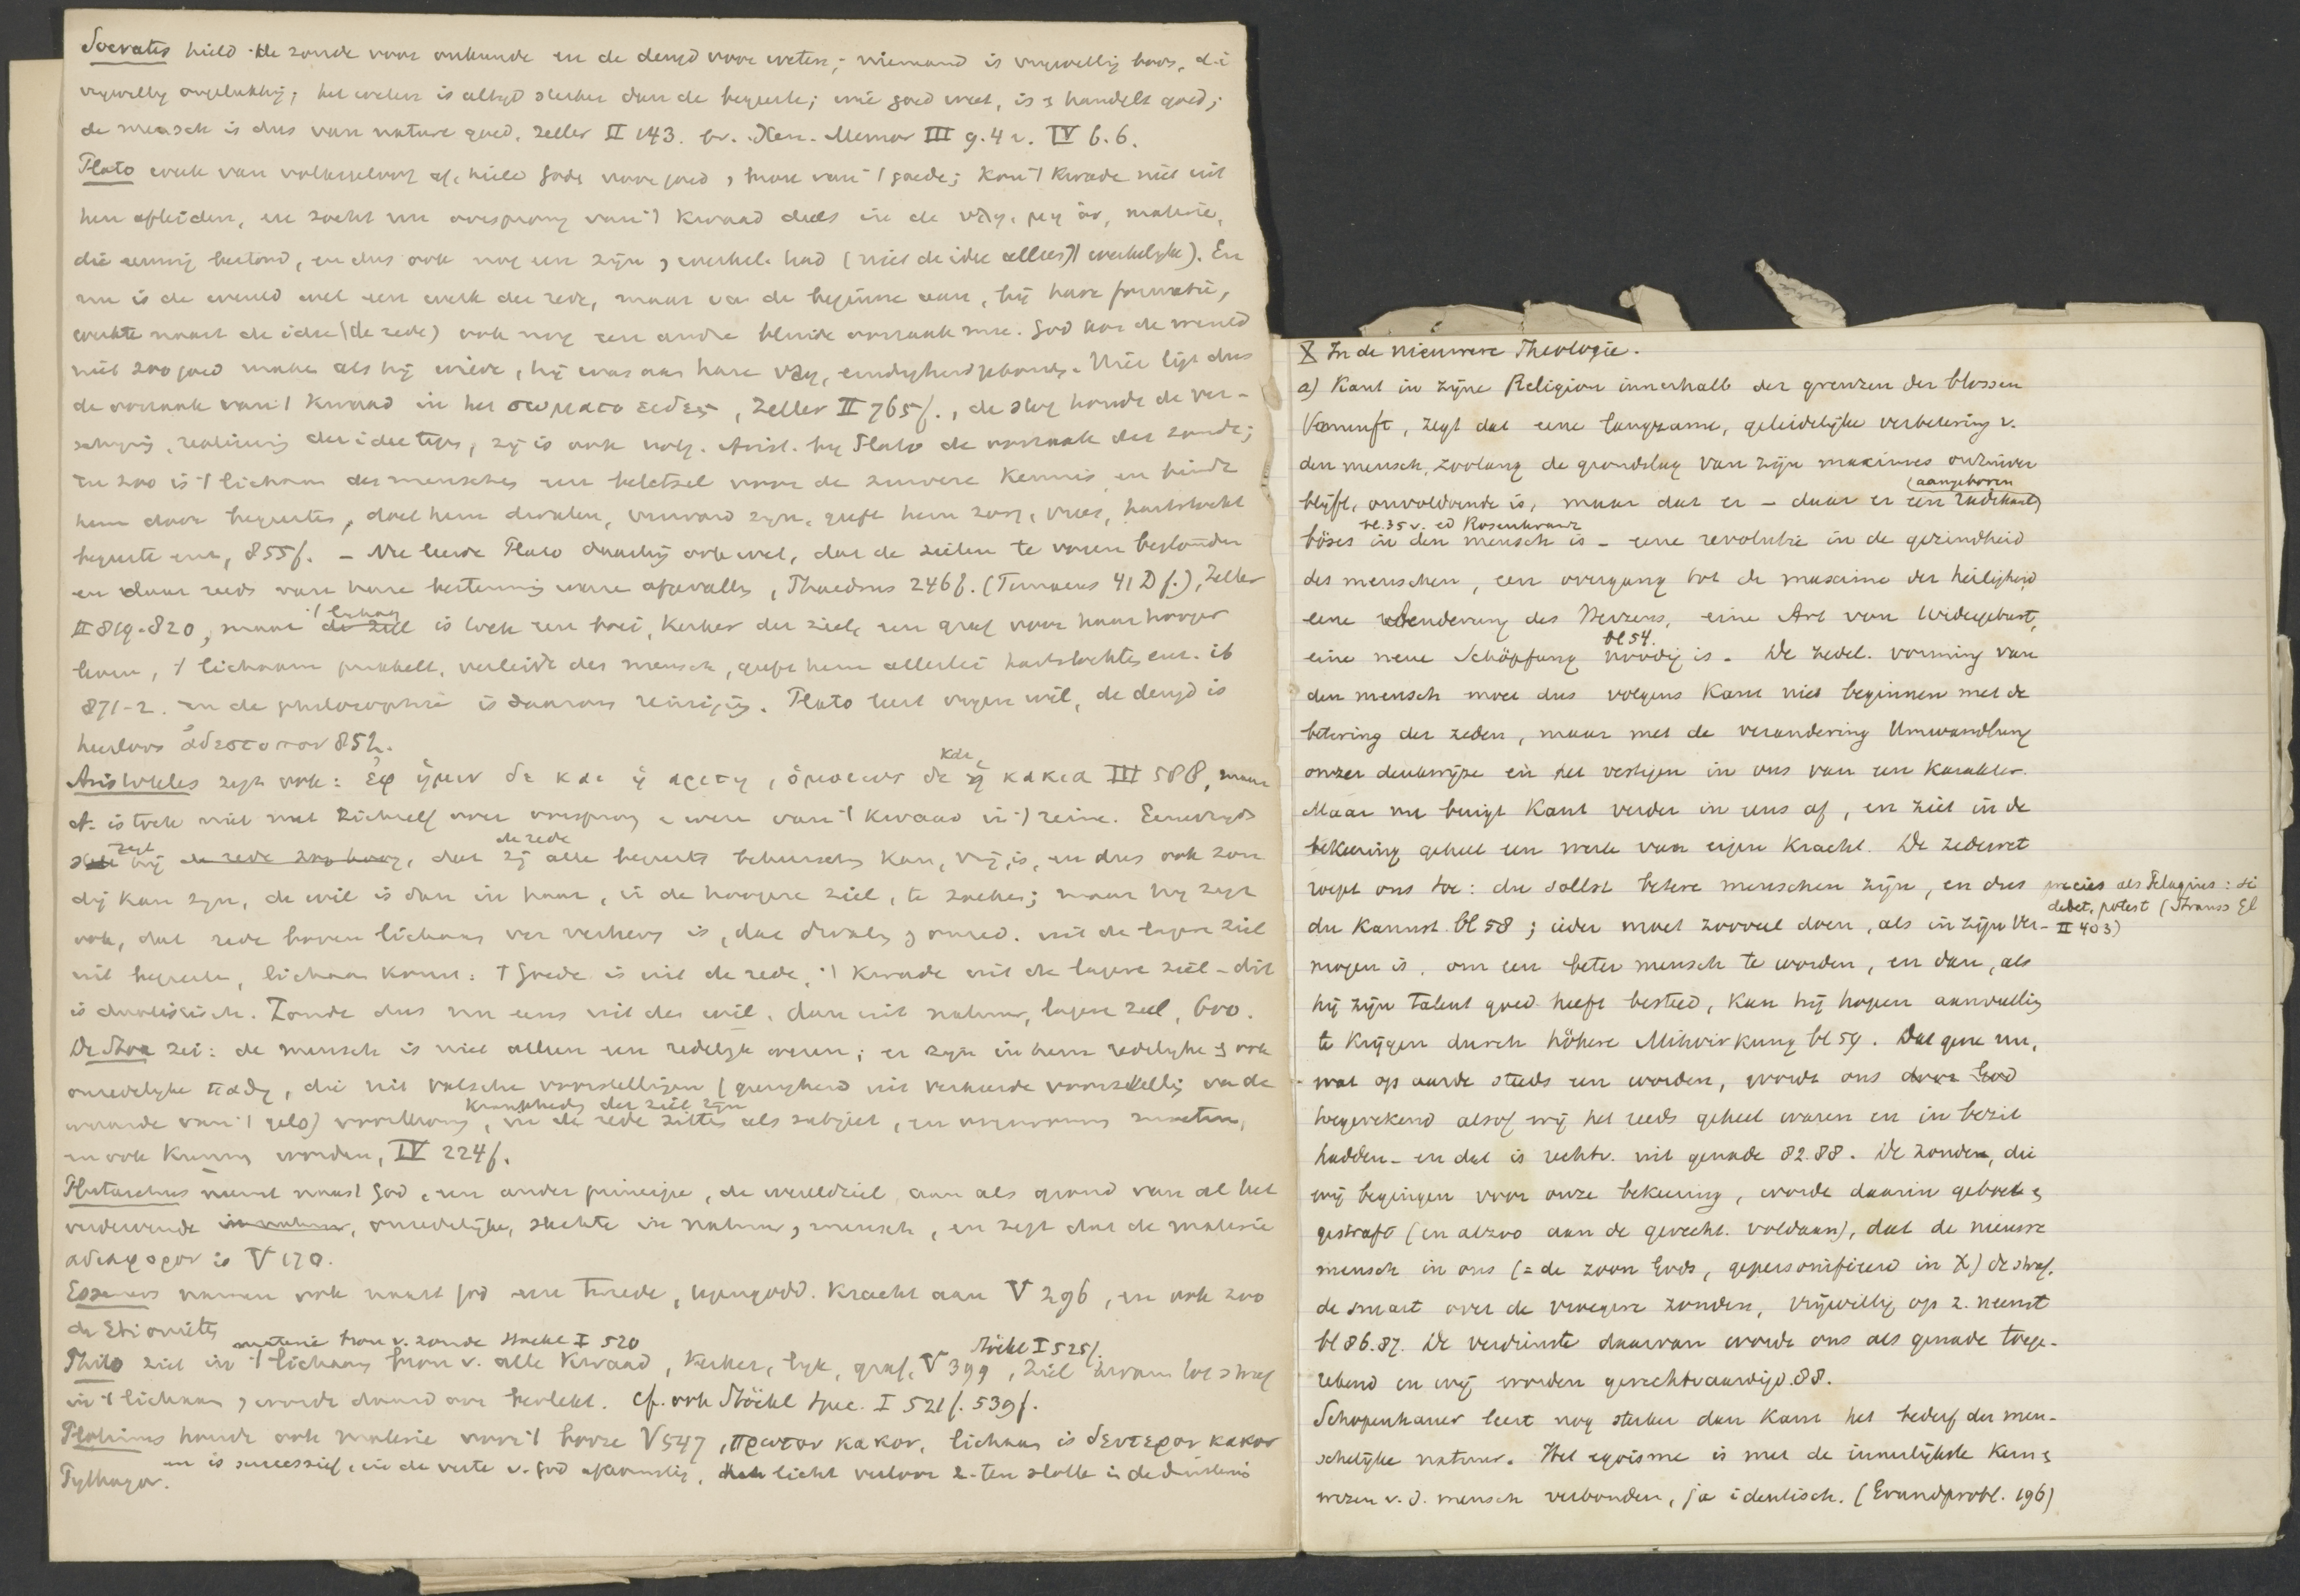 Socrates hield de zonde voor onkunde en de deugd voor weten; niemand is vrywillig boos, d.i
vrywillig ongelukkig; het weten is altyd sterker dan de begeerte; wie goed weet, is & handelt goed;
de mensch is dus van nature goed. Zeller II 143. Xen. Memor III 9.4 v. IV 6.6.
Plato week van volksgeloof af, hield Gods voor goed, van 't goede; kon 't kwade niet uit
hen afleiden, en zocht nu oorsprong van 't kwaad deels in de ὑλη, μη ὀν, materie,
die eeuwig bestond, en dus ook nog een zyn, werkel. had (niet de idee alleen 't werkelyke). En
nu is de wereld wel een werk der rede, maar van de beginne aan, bij hare formatie,
werkte naast de idee (de rede) ook nog een andre blinde oorzaak mee. God kon de wereld
niet zoo goed maken als hij wilde, hij was aan hare ὑλη, eindigheid gebonden. Hier ligt dus
de oorzaak van 't kwaad in het σωματο ειδες, Zeller II 765f., de stof houdt de ver-
schijning, realisering der idee tegen, zy is ook volg. Arist. by Plato de oorzaak der zonde;
en zoo is 't lichaam des menschen een beletsel voor de zuivere kennis en
hem door begeerten, doet hem dwalen, verward zyn, geeft hem zorg, vrees, hartstocht
begeerte enz, 855f. - Nu leerde Plato daarbij ook wel, dat de zielen te voren bestonden
en daar reeds van hare bestemming waren afgevallen, Phaedrus 246f. (Timaeus 41 D f.), Zeller
II 819-820, maar 't lichaam is toch een boei, kerker der ziel, een graf voor haar hooger
leven, 't lichaam prikkelt, verleidt den mensch, geeft hem allerlei hartstochten enz. ib
871-2. en de philosophie is daarom reiniging. Plato leert vryen wil, de deugd is
heerloos ἀδεσποτον 852.
Aristoteles zegt ook: ἐφ ἡμιν δε και ἡ αρετη, ὁμοιως δε και ἡ κακια III 588, maar
A. is toch niet met zichzelf over oorsprong & wezen van 't kwaad in 't reine. Eenerzyds
zegt hij de rede zoo hoog, dat zij de rede alle begeerte beheerschen kan, vrij is, en dus ook zon
dig kan zyn, de wil is dan in haar, in de hoogere ziel, te zoeken; maar hy zegt
ook, dat rede boven lichaam ver verheven is, dat dwaling & onred. uit de lagere ziel
uit begeerte, lichaam komt: 't goede is uit de rede, 't kwade uit de lagere ziel - dit
is dualistisch. Zonde dus nu eens uit den wil, dan uit natuur, lagere ziel, 600.
De Stoa zei: de mensch is niet alleen een redelyk wezen; er zyn in hem redelyke & ook
onredelyke παθη, die uit valsche voorstellingen (gierigheid uit verkeerde voorstelling van de
waarde van 't geld) voortkomen, krankheden der ziel zijn, in de rede zitten als subject,
en ook kunnen worden, IV 224f.
Plutarchus neemt naast God, een ander principe, de wereldziel, aan als grond van al het
verdervende in natuur, onredelijke, slechte in natuur, mensch, en zegt dat de materie
αδιαφορον is V 170.
Esseners namen ook naast God een tweede, tegengodd. kracht aan V 296, en ook zoo
de Ebionieten
materie bron v. zonde Stöckl I 520 Stöckl I 525f.
Philo ziet in 't lichaam bron v. alle kwaad, kerker, lyk, graf, V 399, ziel kwam tot straf
in 't lichaam, wordt daardoor bevlekt. Cf. ook Stöckl Spec. I 521f. 539f.
Plotinus houdt ook materie voor 't booze V 547, πρωτον κακον, lichaam is δευτερον κακον
en is successief, in de verte v. God afkomstig, licht verloor z. ten slotte in de duisternis
Pythagor.
X In de nieuwere Theologie.
a) Kant in zyne Religion innerhalb der grenzen der blossen
Vernunft, zegt dat eene langzame, geleidelijke verbetering v.
den mensch, zoolang de grondslag van zijn maximes onzuiver
blijft, onvoldoende is, maar dat er - daar er een (aangeboren radikaal)
böses in den mensch is bl. 35 v. ed Rosenkranz - eene revolutie in de gezindheid
des menschen, een overgang tot de maxime der heiligheid
eene Aenderung des Herzens, eine Art von Widergeburt,
eine neue Schöpfung noodig is bl 54. De zedel. vorming van
den mensch moet dus volgens Kant niet beginnen met de
betering der zeden, maar met de verandering Umwandlung
onzer denkwijze en het vestigen in ons van een karakter.
Maar nu buigt Kant verder in eens af, en ziet in de
bekeering geheel een werk van eigen kracht. De zedewet
roept ons toe: du sollst betere menschen zijn, en dus
precies als Pelagius: si
debet, potest (Strauss Gl
II 403)
du kannst. bl 58; ieder moet zooveel doen, als in zijn ver-
mogen is, om een beter mensch te worden, en dan, als
hij zijn talent goed heeft besteed, kan hij hopen aanvulling
te krijgen durch höhere Mitwirkung bl 59. Dat gene nu,
wat op aarde steeds een worden, wordt ons door God
toegerekend alsof wij het reeds geheel waren en in bezit
hadden - en dat is rechtv. uit genade 82.88. De zonden, die
wij begingen voor onze bekeering, worde daarin geboet &
gestraft (en alzoo aan de gerecht. voldaan), dat de nieuwe
mensch in ons (= de zoon Gods, gepersonifieerd in X) de straf,
de smart over de vroegere zonden, vrijwillig op z. neemt
bl 86.87. De verdienste daarvan wordt ons als genade toege-
rekend en wij worden gerechtvaardigd. 88.
Schopenhauer leert nog sterker dan Kant het bederf der men-
schelijke natuur. Het egoïsme is met de innerlijkste kern &
wezen v. d. mensch verbonden, ja identisch. (Grundprobl. 196)